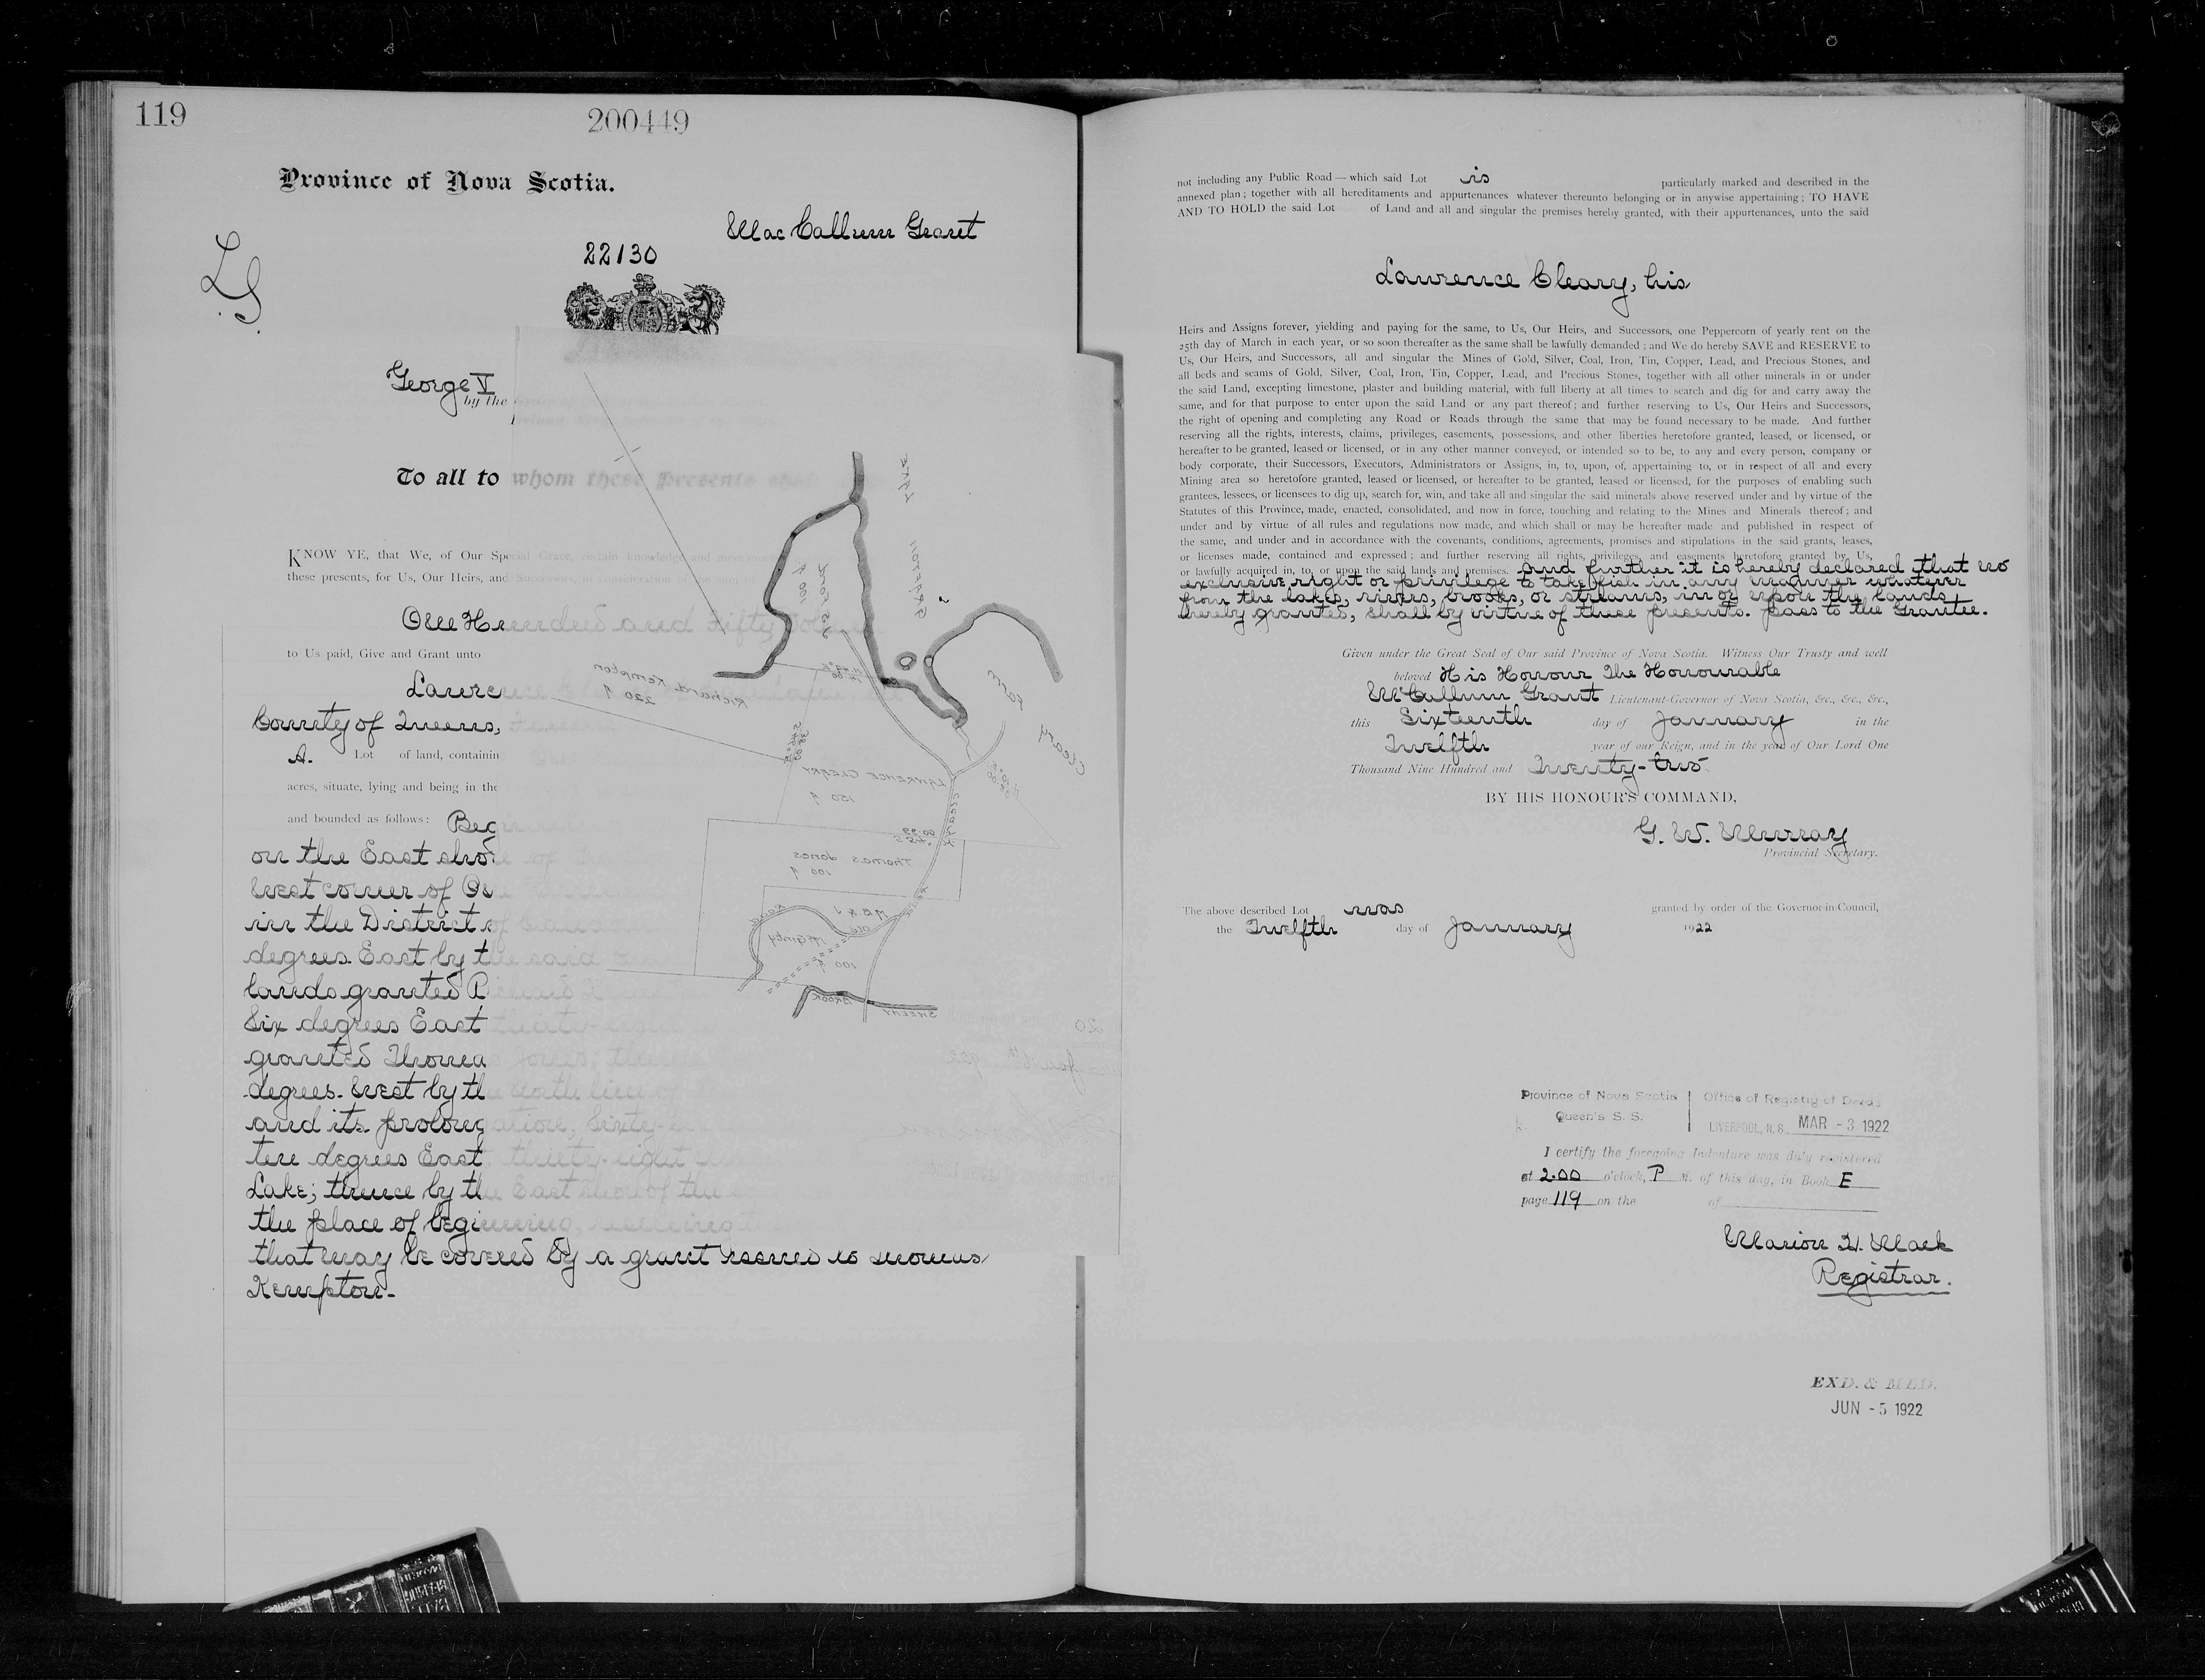 119
200449
Province of Nova Scotia.
MacCallum Grant
L.S.
22130
George V
by the
To all to whom these Presents shall
KNOW YE, that We, of Our Special Grace, certain knowledge and mere
these presents, for Us, Our Heirs, and Successors, in consideration of the sum of
One Hundred and Fifty
to Us paid, Give and Grant unto
Lawrence
County of Queens, Farmer
A. Lot of land, containin
acres, situate, lying and being in the
and bounded as follows: Beginning
on the East shore of
West corner of One Hundred
in the District of Caledonia
degrees East by the said
lands granted Richard Kempton
Six degrees East thirty-eight
granted Thomas Jones; thence
degrees West by the North line of
and its prolongation, Sixty-six
ten degrees East, thirty-eight
Lake; thence by the East shore of the
the place of beginning, reserving
that may be covered by a grant issued to Thomas
Kempton-
LAKE
Richard Kempton
220 A
100 A
LAWRENCE CLEARY
150 A
Thomas Jones
100 A
McGinty
100 A
Old Road
BROOK
not including any Public Road — which said Lot is particularly marked and described in the
annexed plan; together with all hereditaments and appurtenances whatever thereunto belonging or in anywise appertaining; TO HAVE
AND TO HOLD the said Lot of Land and all and singular the premises hereby granted, with their appurtenances, unto the said
Lawrence Cleary, his
Heirs and Assigns forever, yielding and paying for the same, to Us, Our Heirs, and Successors, one Peppercorn of yearly rent on the
25th day of March in each year, or so soon thereafter as the same shall be lawfully demanded; and We do hereby SAVE and RESERVE to
Us, Our Heirs, and Successors, all and singular the Mines of Gold, Silver, Coal, Iron, Tin, Copper, Lead, and Precious Stones, and
all beds and seams of Gold, Silver, Coal, Iron, Tin, Copper, Lead, and Precious Stones, together with all other minerals in or under
the said Land, excepting limestone, plaster and building material, with full liberty at all times to search and dig for and carry away the
same, and for that purpose to enter upon the said Land or any part thereof; and further reserving to Us, Our Heirs and Successors,
the right of opening and completing any Road or Roads through the same that may be found necessary to be made. And further
reserving all the rights, interests, claims, privileges, easements, possessions, and other liberties heretofore granted, leased, or licensed, or
hereafter to be granted, leased or licensed, or in any other manner conveyed, or intended so to be, to any and every person, company or
body corporate, their Successors, Executors, Administrators or Assigns, in, to, upon, of, appertaining to, or in respect of all and every
Mining area so heretofore granted, leased or licensed, or hereafter to be granted, leased or licensed, for the purposes of enabling such
grantees, lessees, or licensees to dig up, search for, win, and take all and singular the said minerals above reserved under and by virtue of the
Statutes of this Province, made, enacted, consolidated, and now in force, touching and relating to the Mines and Minerals thereof; and
under and by virtue of all rules and regulations now made, and which shall or may be hereafter made and published in respect of
the same, and under and in accordance with the covenants, conditions, agreements, promises and stipulations in the said grants, leases,
or licenses made, contained and expressed; and further reserving all rights, privileges, and easements heretofore granted by Us,
or lawfully acquired in, to, or upon the said lands and premises. And further it is hereby declared that no
exclusive right or privilege to take fish in any manner whatever
from the lakes, rivers, brooks, or streams, in or upon the lands
hereby granted, shall by virtue of these presents. pass to the Grantee.
Given under the Great Seal of Our said Province of Nova Scotia. Witness Our Trusty and well
beloved His Honour The Honourable
McCallum Grant Lieutenant-Governor of Nova Scotia, &c., &c., &c.,
this Sixteenth day of January in the
Twelfth year of our Reign, and in the year of Our Lord One
Thousand Nine Hundred and Twenty-two.
BY HIS HONOUR'S COMMAND,
G. W. Murray
Provincial Secretary.
The above described Lot was granted by order of the Governor-in-Council,
the Twelfth day of January 1922
Province of Nova Scotia | Office of Registry of Deeds
Queen's S. S. LIVERPOOL, N. S. MAR - 3 1922
I certify the foregoing Indenture was duly registered
at 2.00 o'clock, P M. of this day, in Book E
page 119 on the of
Marion H. Mack
Registrar.
EXD. & MED.
JUN - 5 1922